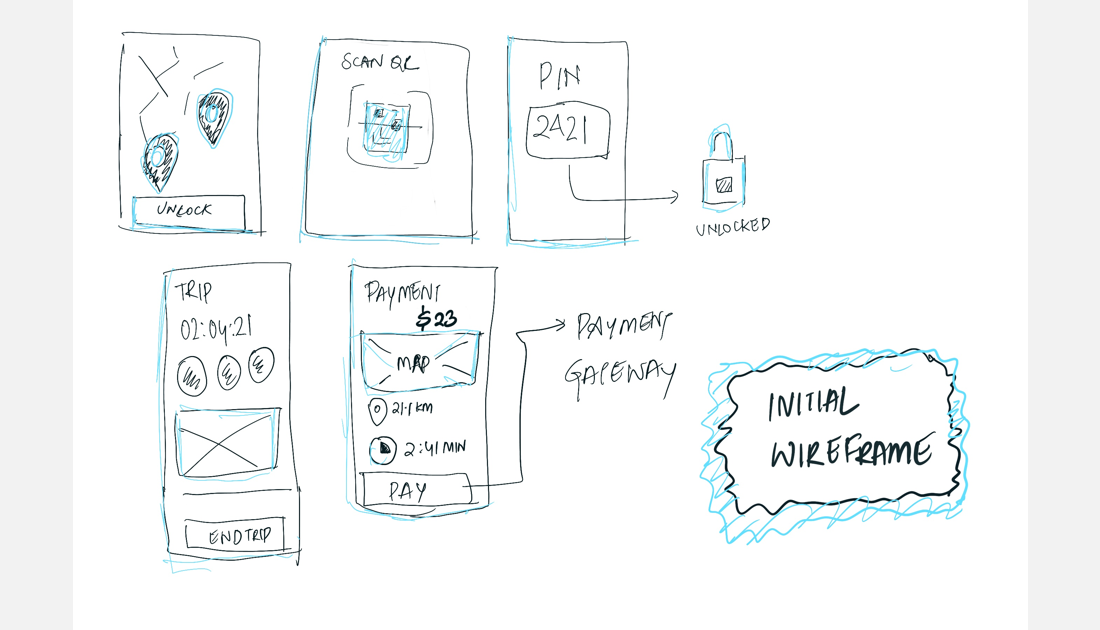 UNLOCK
SCAN QR
PIN
2421
UNLOCKED
TRIP
02:04:21
END TRIP
PAYMENT
$23
MAP
21.1 KM
2:41 MIN
PAY
PAYMENT
GATEWAY
INITIAL
WIREFRAME